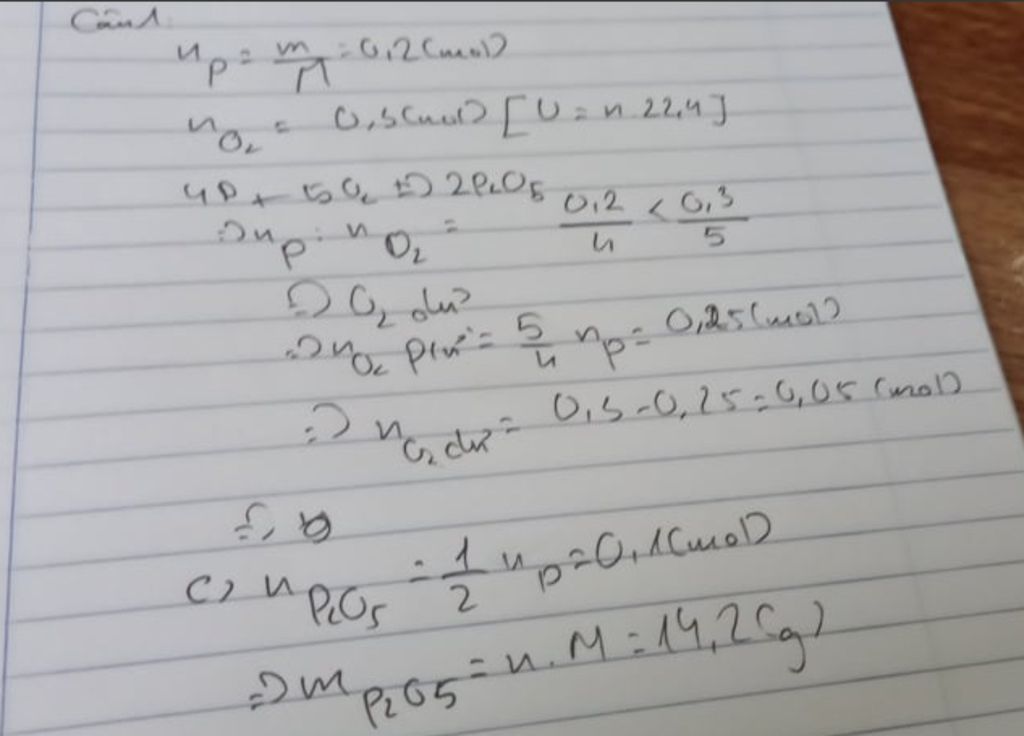 Câu 1.
n_P = m/M = 0,2 (mol)
n_O2 = 0,3 (mol) [V = n.22,4]
4P + 5O2 => 2P2O5
=> n_P : n_O2 = 0,2/4 < 0,3/5
=> O2 dư
=> n_O2 pứ = 5/4 n_P = 0,25 (mol)
=> n_O2 dư = 0,3 - 0,25 = 0,05 (mol)
=>
c) n_P2O5 = 1/2 n_P = 0,1 (mol)
=> m_P2O5 = n.M = 14,2 (g)